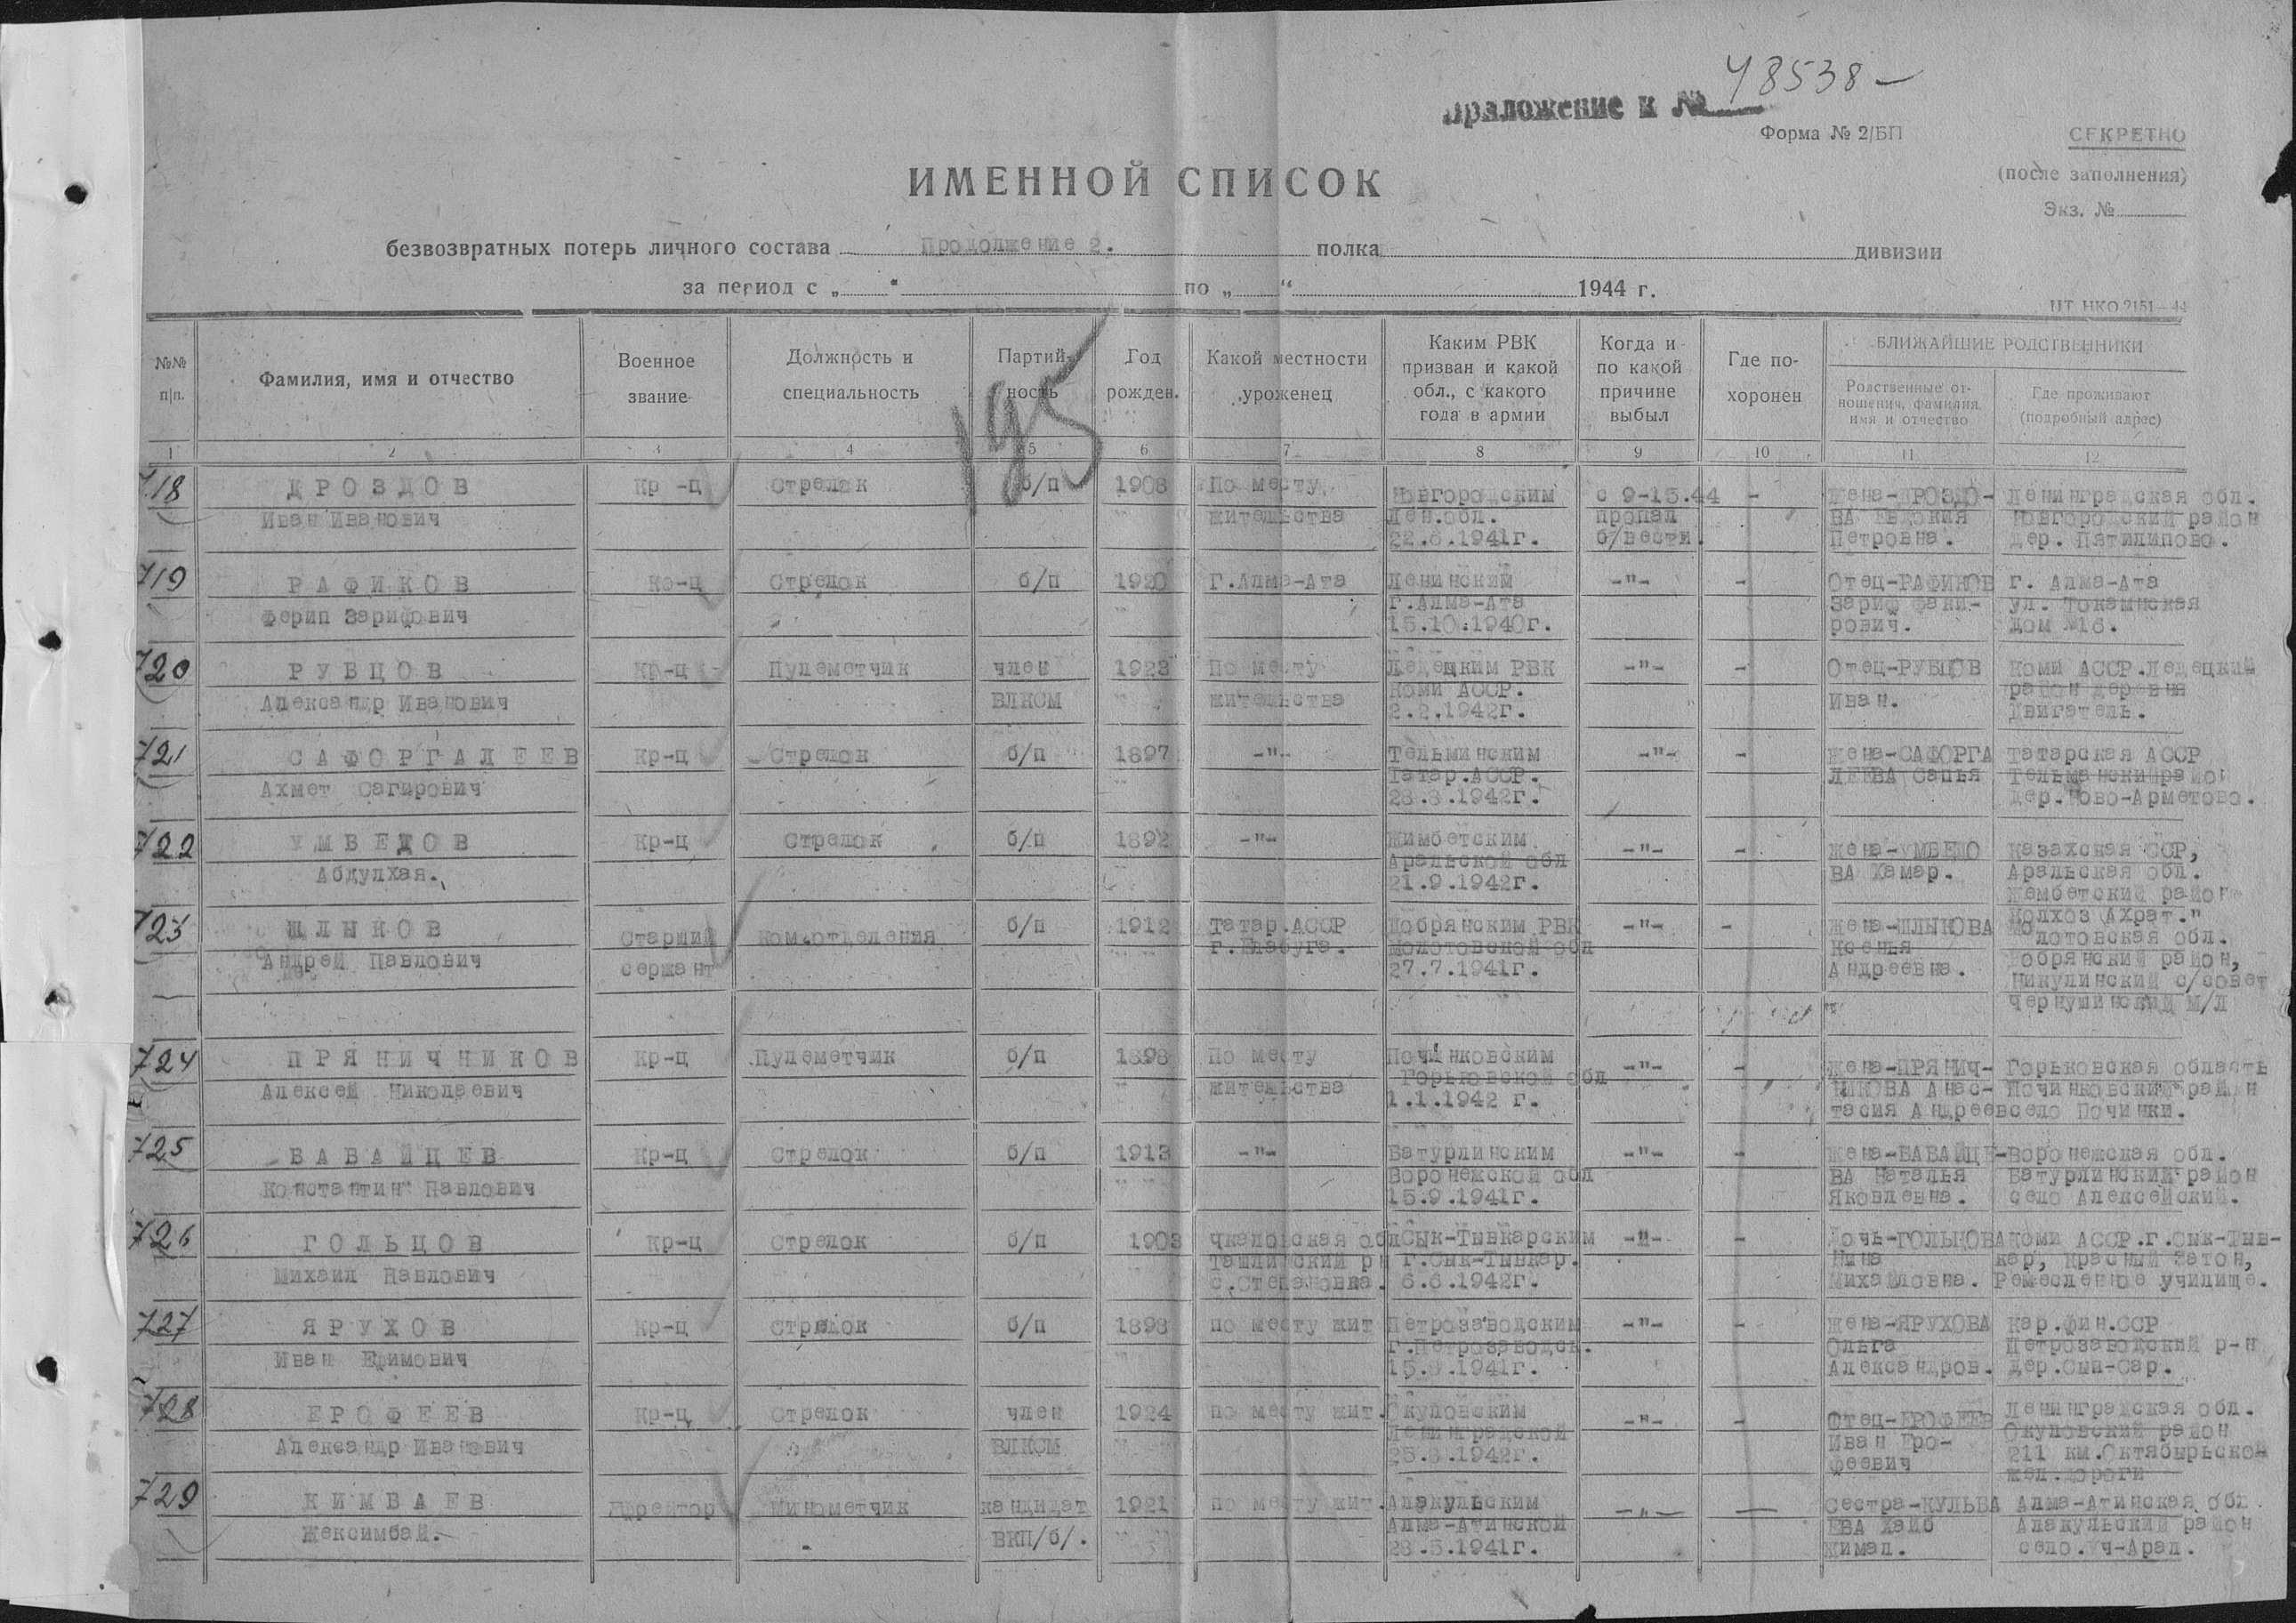 48538 —
Приложение к №
Форма № 2/БП
СЕКРЕТНО
(после заполнения)
Экз. №
ИМЕННОЙ СПИСОК
безвозвратных потерь личного состава Продолжение 2. полка дивизии
за период с „ “ по „ “ 1944 г.
ЦТ НКО 2151—44
195
№№ п|п.
Фамилия, имя и отчество
Военное звание
Должность и специальность
Партийность
Год рожден.
Какой местности уроженец
Каким РВК призван и какой обл., с какого года в армии
Когда и по какой причине выбыл
Где похоронен
БЛИЖАЙШИЕ РОДСТВЕННИКИ
Родственные отношения, фамилия, имя и отчество
Где проживают (подробный адрес)
1 2 3 4 5 6 7 8 9 10 11 12
718 ДРОЗДОВ Кр-ц Стрелок б/п 1908 По месту Новгородским с 9-15.44 - Жена-ДРОЗДО- Ленинградская обл.
Иван Иванович жительства Лен.обл. пропал ВА Евдокия Новгородский район
22.6.1941г. б/вести. Петровна. дер. Пятилипово.
719 РАФИКОВ Кр-ц Стрелок б/п 1920 Г.Алма-Ата Ленинским -"- - Отец-РАФИКОВ г. Алма-Ата
Ферип Зарифович г.Алма-Ата Зариф Факи- ул. Токамнская
15.10.1940г. рович. дом №16.
720 РУБЦОВ Кр-ц Пулеметчик член 1923 По месту Ледецким РВК -"- - Отец-РУБЦОВ Коми АССР.Ледецкий
Александр Иванович ВЛКСМ жительства Коми АССР. Иван. район деревня
2.2.1942г. Двигатель.
721 САФОРГАЛЕЕВ Кр-ц Стрелок б/п 1897 -"- Тельминским -"- - Жена-САФОРГА Татарская АССР
Ахмет Сагирович Татар.АССР. ЛЕЕВА Сапья Тельманскийрайон
28.3.1942г. дер.Ново-Арметово.
722 УМБЕДОВ Кр-ц Стрелок б/п 1892 -"- Жимбетским -"- - Жена-УМБЕДО Казахская ССР,
Абдулхая. Аральской обл ВА Хамар. Аральская обл.
21.9.1942г. Жембетский район
Колхоз "Ахрат."
723 ШЛЫКОВ Старший Ком.отделения б/п 1912 Татар.АССР Добрянским РВК -"- - Жена-ШЛЫКОВА Молотовская обл.
Андрей Павлович сержант г.Елабуга. Молотовской обл Ксенья Добрянский район,
27.7.1941г. Андреевна. Никулинский с/совет
Чернушинский М/Л
724 ПРЯНИЧНИКОВ Кр-ц Пулеметчик б/п 1898 По месту Починковским -"- - Жена-ПРЯНИЧ- Горьковская область
Алексей Николаевич жительства Горьковской обл НИКОВА Анас- Починковский район
1.1.1942 г. тасия Андреев село Починки.
725 ВАВАЙЦЕВ Кр-ц Стрелок б/п 1913 -"- Батурлинским -"- - Жена-ВАВАЙЦЕ- Воронежская обл.
Константин Павлович Воронежской обл ВА Наталья Батурлинский район
15.9.1941г. Яковлевна. село Алексейский.
726 ГОЛЬЦОВ Кр-ц Стрелок б/п 1903 Чкаловская обл Сык-Тывкарским -"- - Дочь-ГОЛЬЦОВА Коми АССР.г.Сык-Тыв-
Михаил Павлович Ташлинский рн г.Сык-Тывкар. Нина кар, Красный Затон,
с.Степановка. 6.6.1942г. Михайловна. Ремесленное училище.
727 ЯРУХОВ Кр-ц Стрелок б/п 1898 по месту жит Петрозаводским -"- - Жена-ЯРУХОВА Кар.фин.ССР
Иван Ефимович г.Петрозаводск. Ольга Петрозаводский р-н
1941г. Александров. дер.Сып-Сар.
728 ЕРОФЕЕВ Кр-ц Стрелок член 1924 по месту жит. Окуловским -"- - Отец-ЕРОФЕЕВ Ленинградская обл.
Александр Иванович ВЛКСМ Ленинградской Иван Еро- Окуловский район
1942г. феевич 211 км.Октябрьской
жел.дороги
729 КИМБАЕВ Ефрейтор Минометчик кандидат 1921 по месту жит. Алакульским -"- — Сестра-КУЛЬБА Алма-Атинская обл.
Жексимбай. ВКП/б/. Алма-Атинской ЕВА Хайб Алакульский район
28.5.1941г. жимал. село.Уч-Арал.